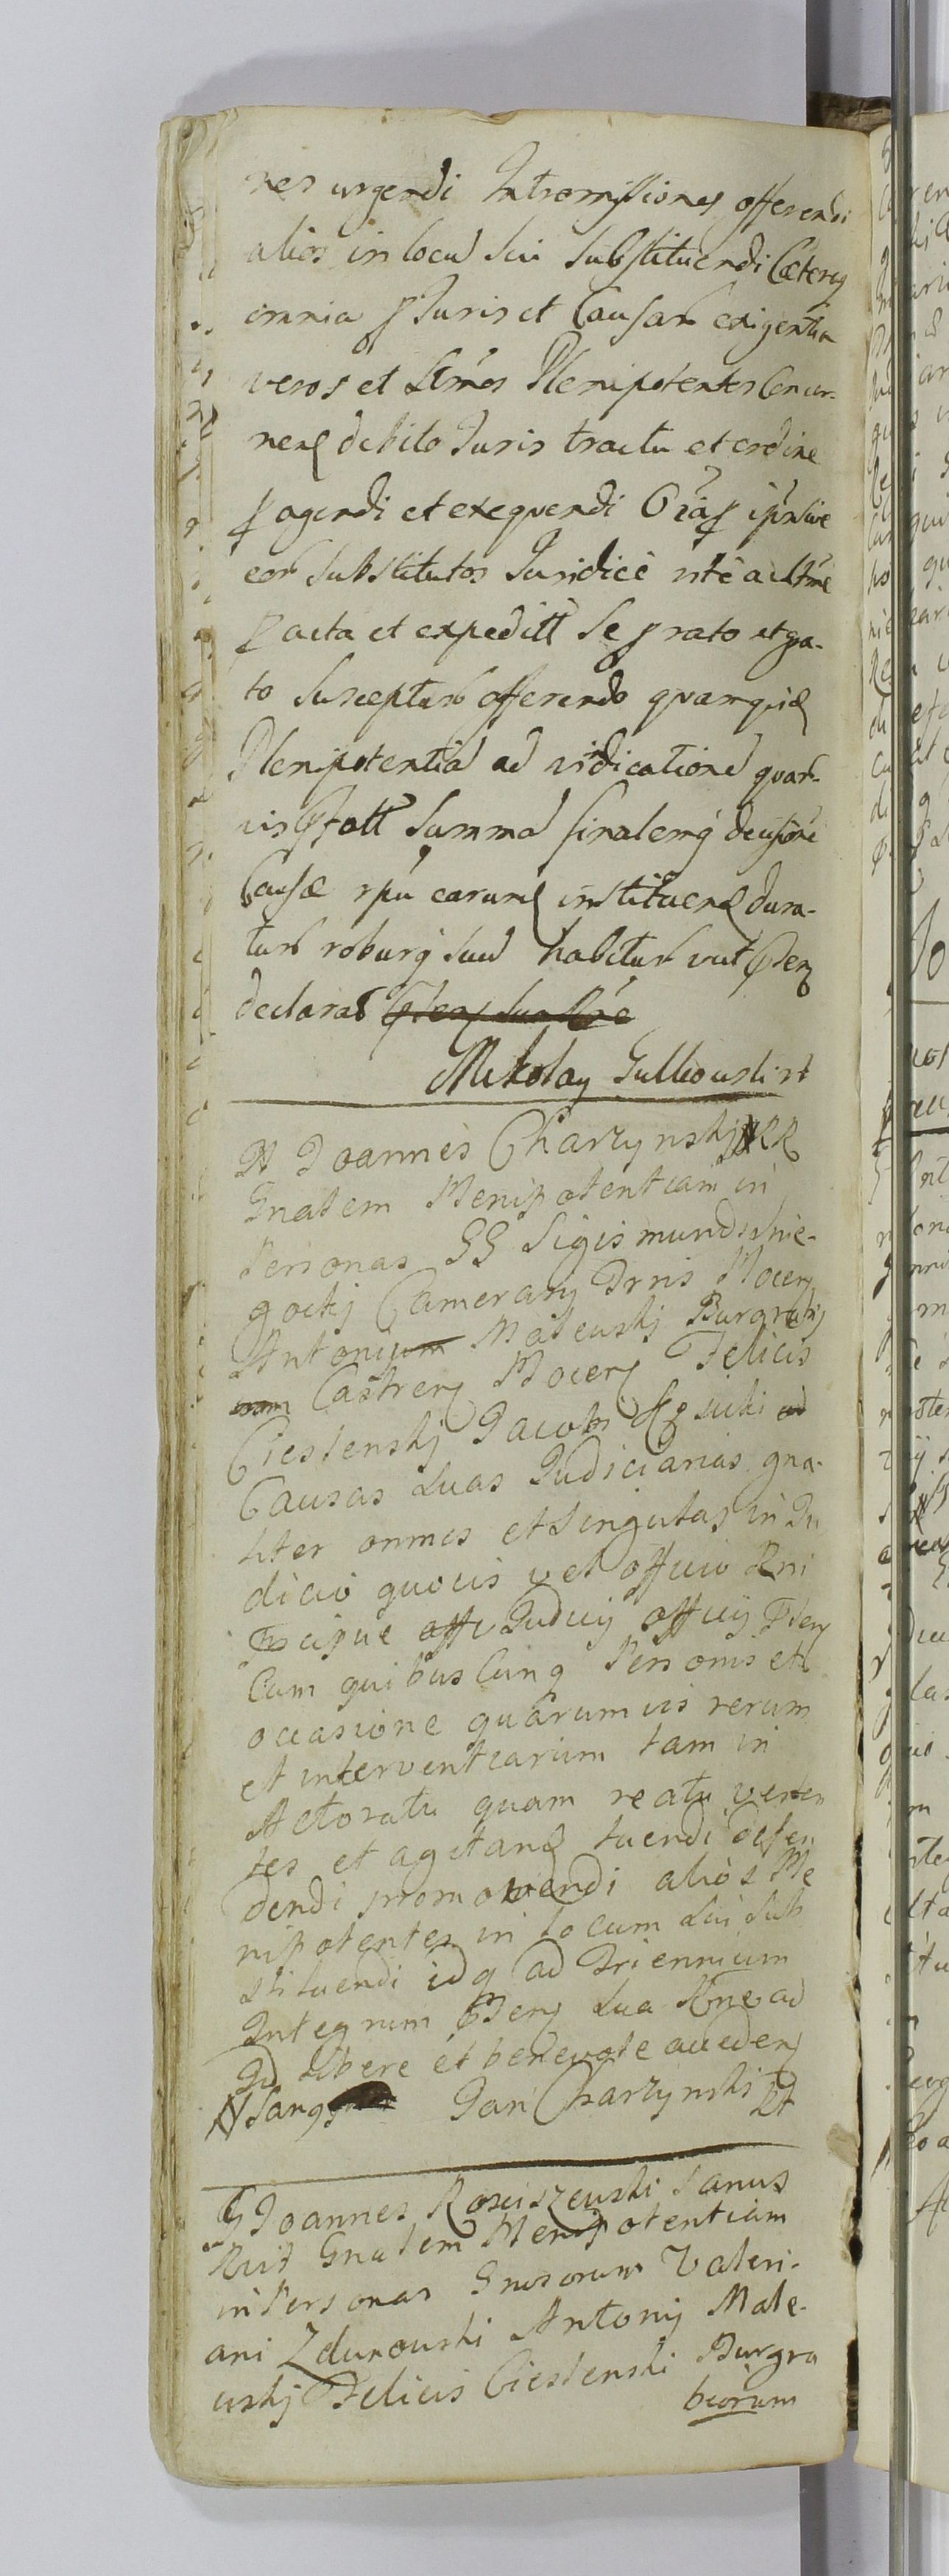 nes urgendi Intromissiones offerendi
alios in locu sui substituendi Caeteraq
omnia p Juris et Causar exigentia
veros et Ltmos Plenipotentes Concer-
nen debito Juris tractu et ordine
p agendi et exequendi Oia p ipsos sive
eor substitutos Juridicè ritè ac ltme
p acta et expeditt se p rato et gra-
to suscepturu offerendo quamquid
Plenipotentia ad vindicatione quar-
vis Summa finalemq decisione
Causae rpu earum instituend dura-
tur roburq suu habitur vult psens
declarat psens sua
Mikolay Gulkowski rt
N Joannes Charzynskj RR
Gnalem Plenipotentiam in
Personas GG Sigismundi Snie-
gockj Camerarij Trris Plocen
Antonium Maleuskj Burgrabij
Castren Plocen Felicis
Cieslenskj Jacobi ad
Causas suas Judiciarias gna-
liter omnes et singulas in Ju
dicio quovis vel officio Rni
Prcipue offi Judicij officij psen
Cum quibuscunq Personis et
occasione quarumvis rerum
et interventiarum tam in
Actoratu quam reatu verten
tes et agitand tuendi defen
dendi promovendi aliòs Ple
nipotentes in locum sui sub
stituendi idq ad Triennium
Integrum psens sua ad
Id libere et benevole acceden
N sanq Jan Charzynski rt
G Joannes Rosciszewski sanus
Rvit Gnalem Plenipotentiam
in Personas Gnosorum Valeri-
ani Zdunowski Antonij Male-
uskj Felicis Cieslenski Burgra
biorum